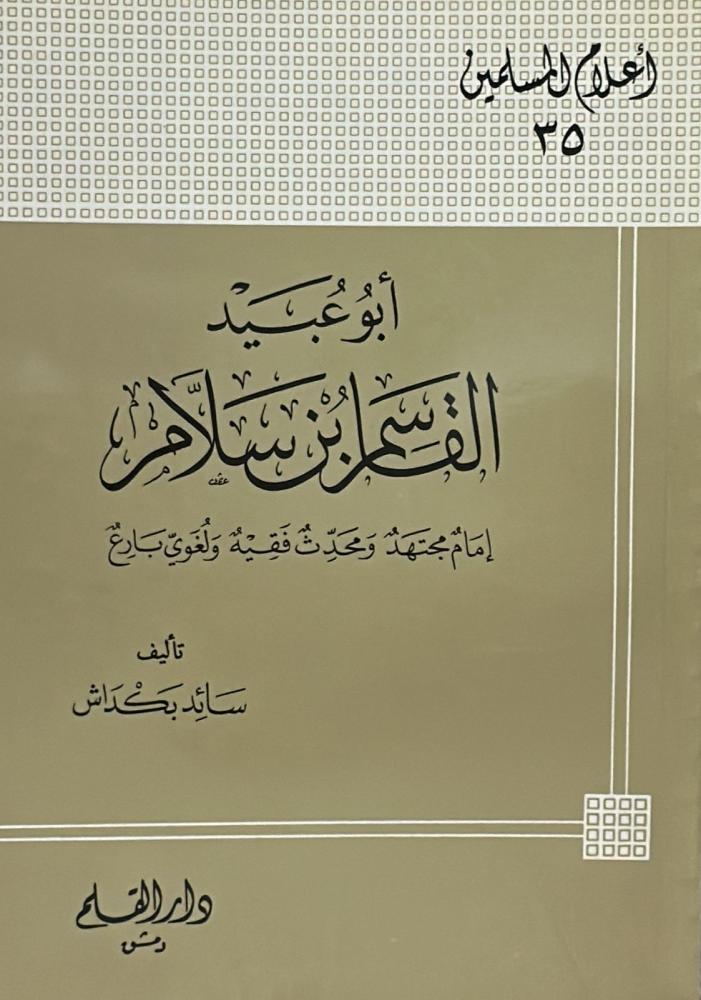 أعلام المسلمين
٣٥
أبو عُبَيْد
القَاسِم بْن سَلَّام
إمَامٌ مجتهَدٌ وَمحَدِّثٌ فَقِيْهٌ وَلُغَويّ بَارِعٌ
تأليف
سَائِد بَكْدَاش
دار القلم
دمشق